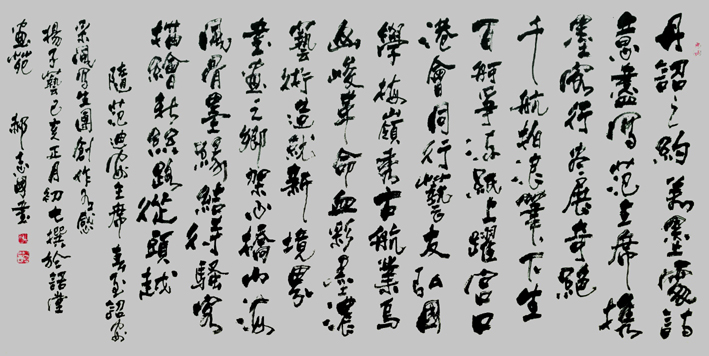 丹詔之約墨詩
意盡寫范主席携
墨客行卷展奇絕
千航拍浪筆下生
百舸爭流紙上躍宮口
港會同行藝友弘國
學梅嶺秀古航業烏
山峻革命血影墨濃
藝術造就新境界
書畫之鄉架心橋山海
風骨墨緣結騷客
描繪新絲路從頭越
隨范迪安主席春至詔安
采風寫生團創作有感
楊子藝己亥正月初七撰於詔堂
畫苑 郝志國書